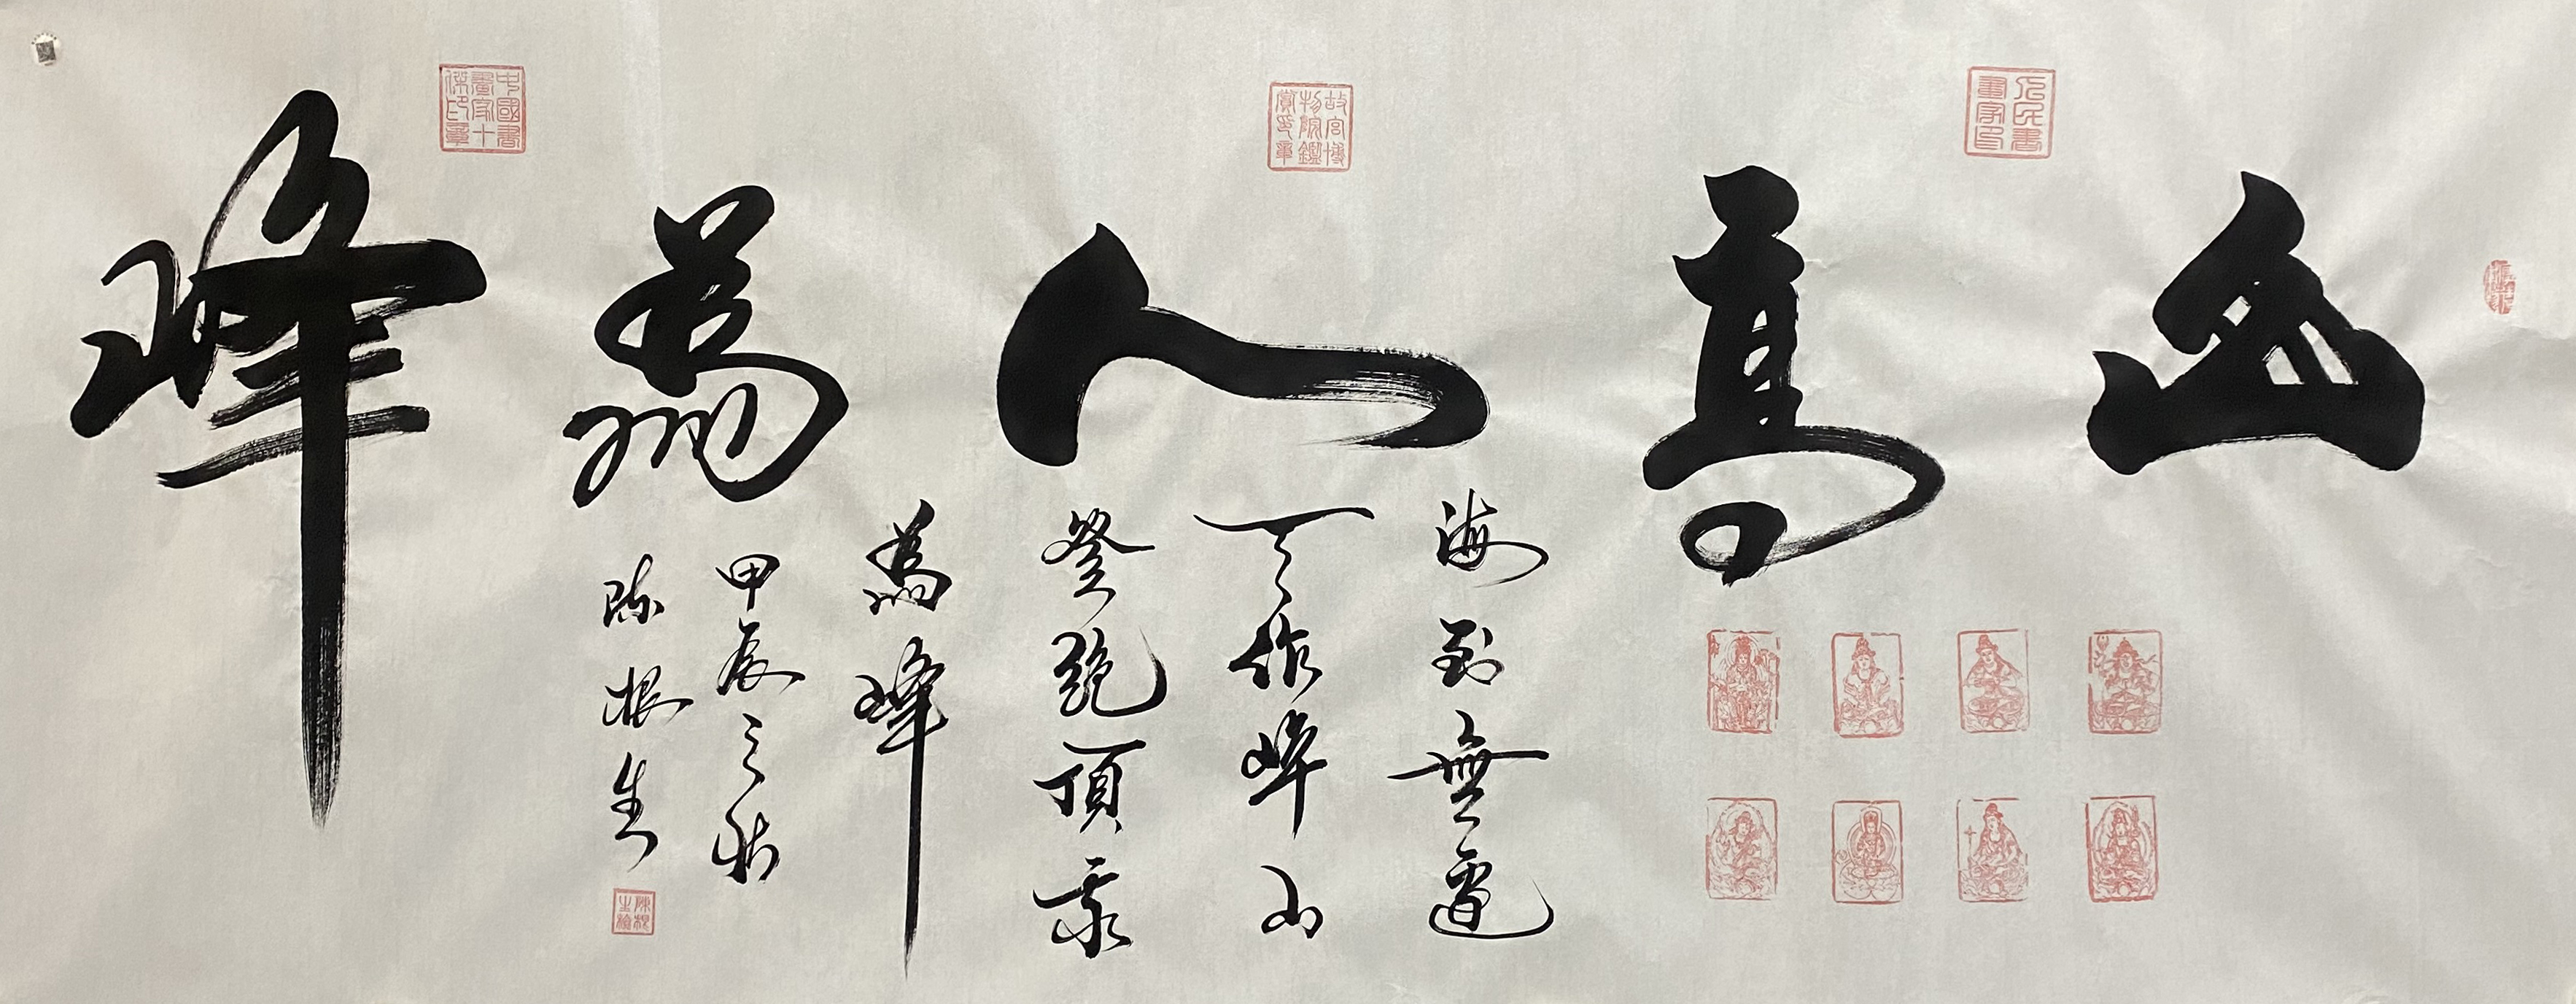 山高人為峰
海到無邊
天作岸山
登絕頂我
為峰
甲辰之秋
陳根生
人民書畫家印
故宮博物院鑑賞印章
中國書畫家十傑印章